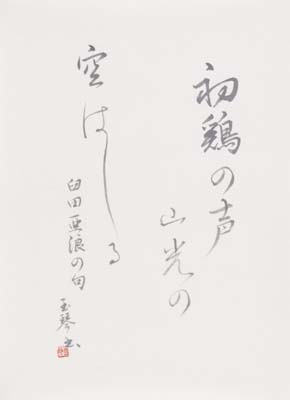 初鶏の声
山光の
空はしる
臼田亜浪の句
玉琴書